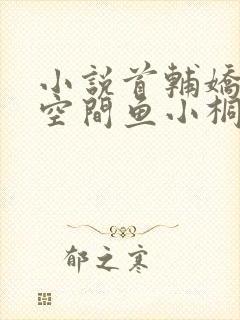 小說首輔嬌
空間魚小桐
郁之寒